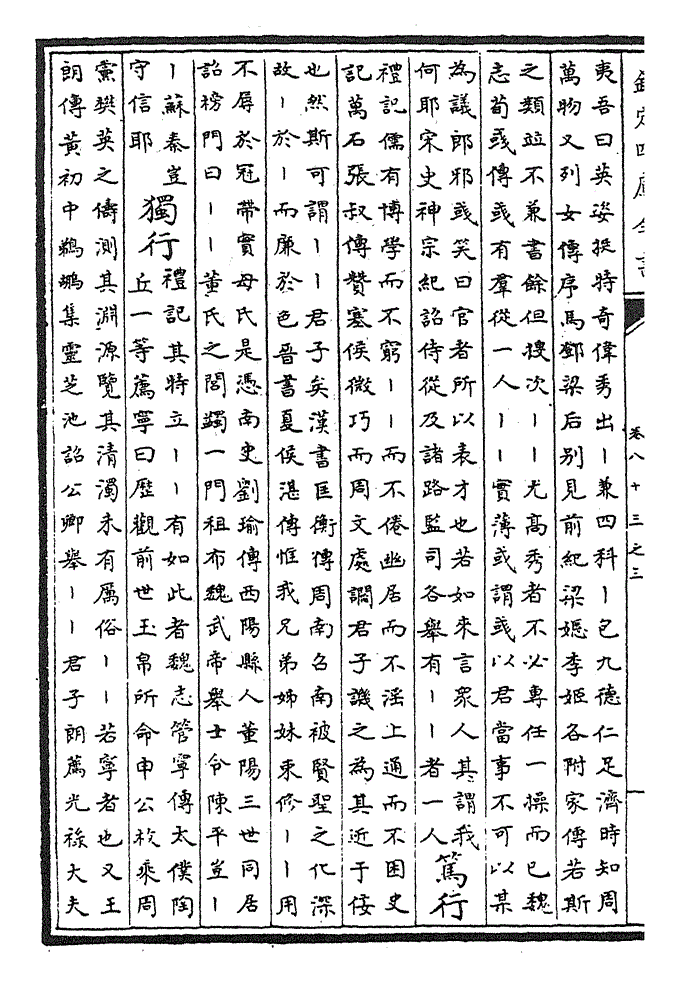 欽定四庫全書
卷八十三之三
夷吾曰英姿挺特奇偉秀出丨兼四科丨包九德仁足濟時知周
萬物又列女傳序馬鄧梁后别見前紀梁嫕李姬各附家傳若斯
之類竝不兼書餘但搜次丨丨尤高秀者不必專任一操而已魏
志荀彧傳彧有羣從一人丨丨實薄或謂彧以君當事不可以某
為議郎邪彧笑曰官者所以表才也若如來言衆人其謂我
何耶宋史神宗紀詔侍從及諸路監司各舉有丨丨者一人
篤行
禮記儒有博學而不窮丨丨而不倦幽居而不淫上通而不困史
記萬石張叔傳贊塞侯微巧而周文處讇君子譏之為其近于佞
也然斯可謂丨丨君子矣漢書匡衡傳周南召南被賢聖之化深
故丨於丨而廉於色晉書夏侯湛傳惟我兄弟姊妹束修丨丨用
不辱於冠帶實母氏是憑南史劉瑜傳西陽縣人董陽三世同居
詔榜門曰丨丨董氏之閭蠲一門租布魏武帝舉士令陳平豈丨
丨蘇秦豈
守信耶
獨行
禮記其特立丨丨有如此者魏志管寧傳太僕陶
丘一等薦寧曰歷觀前世玉帛所命申公枚乘周
黨樊英之儔測其淵源覽其清濁未有厲俗丨丨若寧者也又王
朗傳黃初中鵜鶘集靈芝池詔公卿舉丨丨君子朗薦光祿大夫